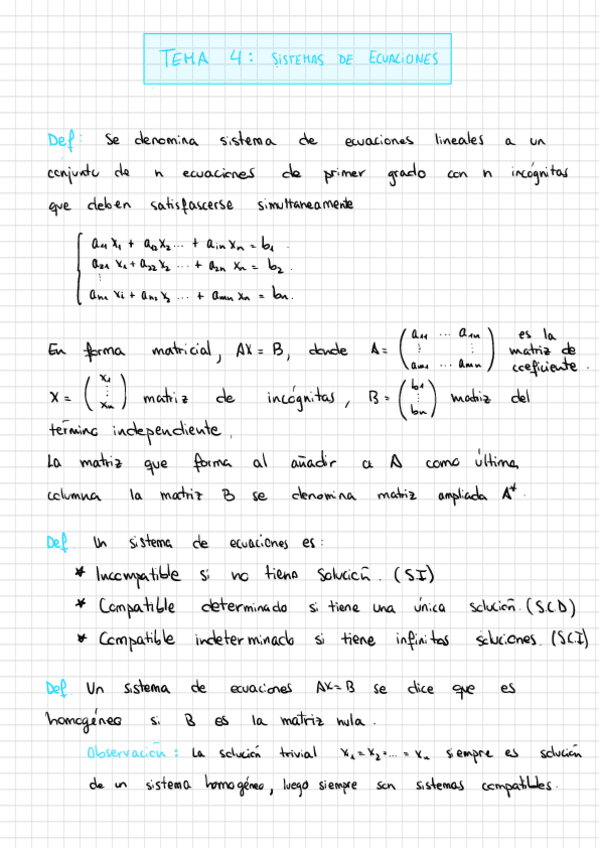 TEMA 4: SISTEMAS DE ECUACIONES
Def: Se denomina sistema de ecuaciones lineales a un
conjunto de n ecuaciones de primer grado con n incógnitas
que deben satisfascerse simultaneamente
a₁₁ x₁ + a₁₂ x₂ ... + a₁n xn = b₁ .
a₂₁ x₁ + a₂₂ x₂ ... + a₂n xn = b₂ .
⋮
am₁ xi + am₂ x₂ ... + amn xn = bn.
En forma matricial, AX = B, donde A = (a₁₁ ... a₁n ⋮ ⋮ am₁ ... amn) es la matriz de coeficiente.
X = (x₁ ⋮ xn) matriz de incógnitas, B = (b₁ ⋮ bn) matriz del
término independiente.
La matriz que forma al añadir a A como última
columna la matriz B se denomina matriz ampliada A*.
Def. Un sistema de ecuaciones es:
* Incompatible si no tiene solución. (SI)
* Compatible determinado si tiene una única solución. (SCD)
* Compatible indeterminado si tiene infinitas soluciones. (SCI)
Def. Un sistema de ecuaciones AX=B se dice que es
homogéneo si B es la matriz nula.
Observación: La solución trivial x₁ = x₂ = ... = xn siempre es solución
de un sistema homogéneo, luego siempre son sistemas compatibles.